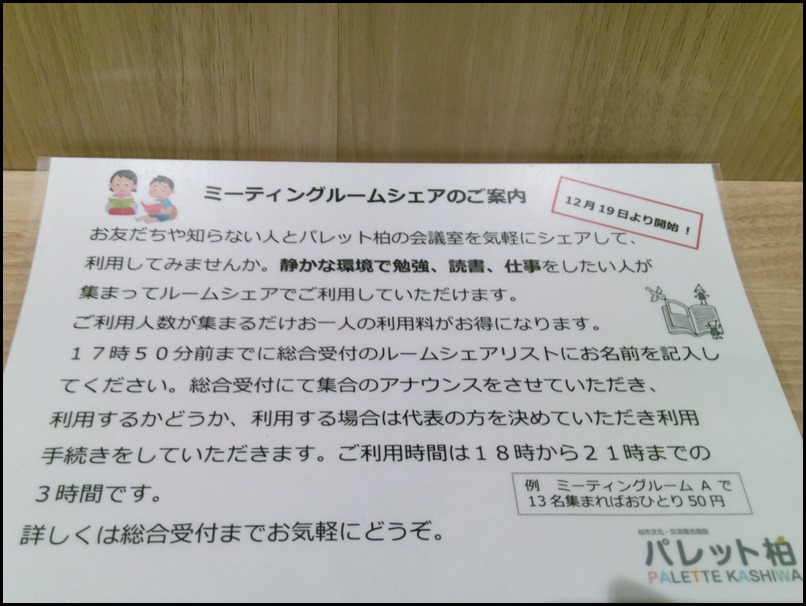 ミーティングルームシェアのご案内
12月19日より開始！
お友だちや知らない人とパレット柏の会議室を気軽にシェアして、
利用してみませんか。静かな環境で勉強、読書、仕事をしたい人が
集まってルームシェアでご利用していただけます。
ご利用人数が集まるだけお一人の利用料がお得になります。
１７時５０分前までに総合受付のルームシェアリストにお名前を記入し
てください。総合受付にて集合のアナウンスをさせていただき、
利用するかどうか、利用する場合は代表の方を決めていただき利用
手続きをしていただきます。ご利用時間は１８時から２１時までの
３時間です。
例　ミーティングルーム A で
13名集まればおひとり50円
詳しくは総合受付までお気軽にどうぞ。
柏市文化・交流複合施設
パレット柏
PALETTE KASHIWA